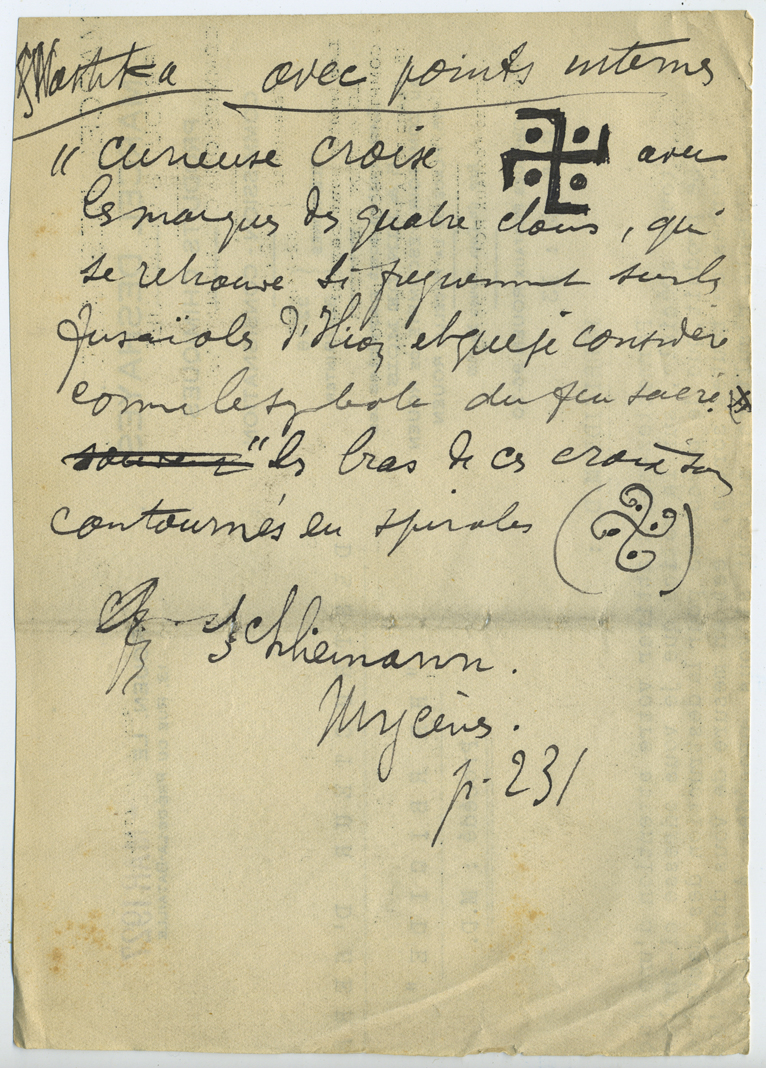 Swastika avec points internes
"curieuse croix avec
les marques des quatre clous, qui
se retrouve si fréquemment sur les
fusaïoles d'Ilion et que je considère
comme le symbole du feu sacré.
" les bras de ces croix sont
contournés en spirales ( )
Schliemann.
Mycènes.
p. 231